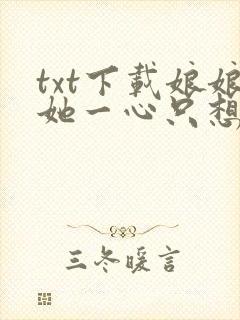 txt下載娘娘
她一心只想
三冬暖言